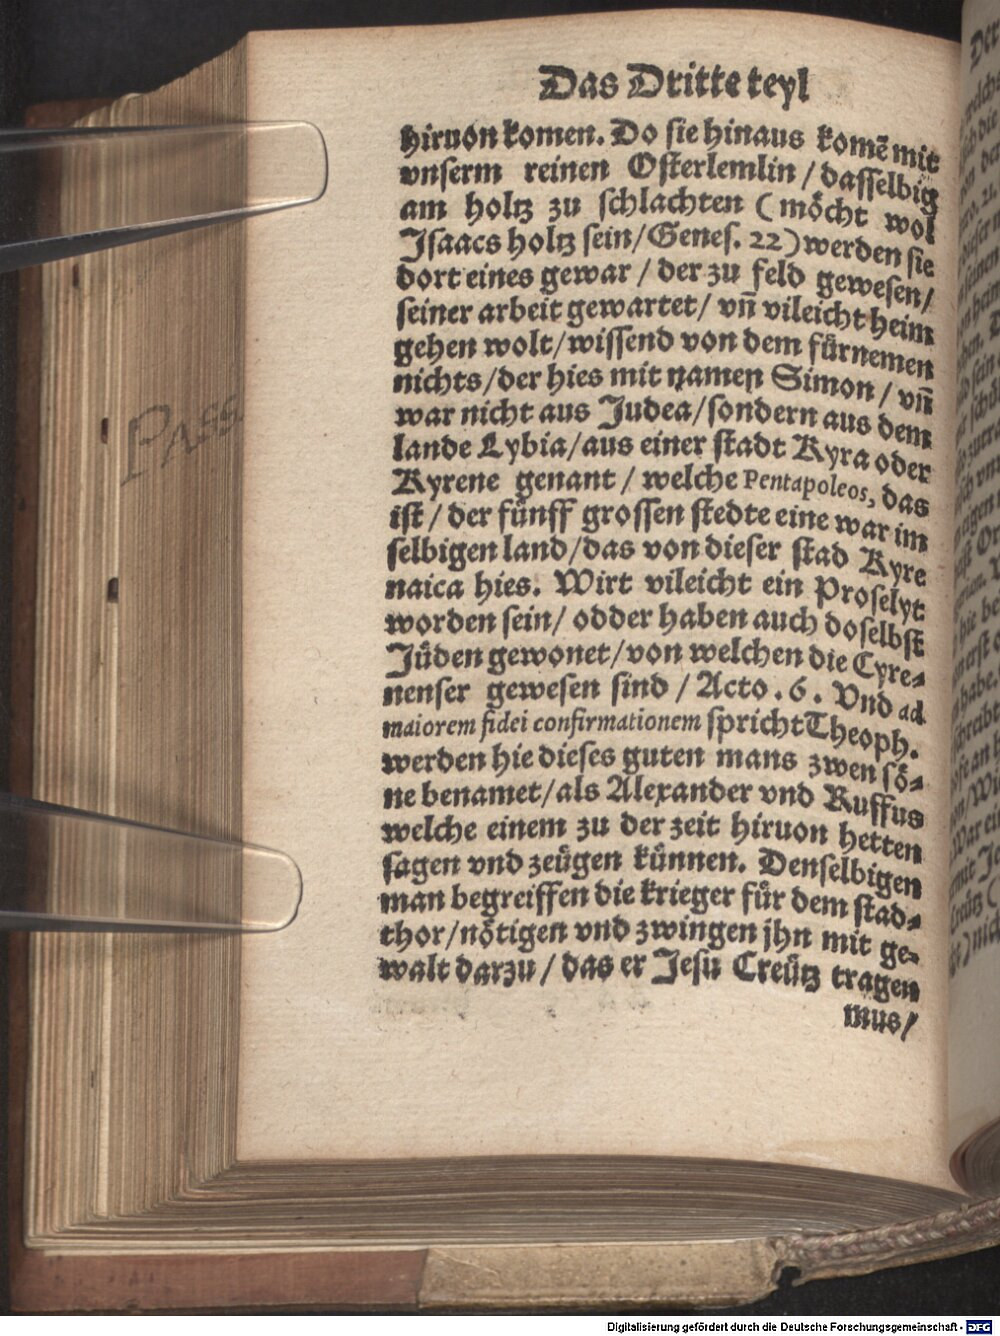 Das Dritte teyl
hiruon komen. Do sie hinaus komē mit
vnserm reinen Osterlemlin / dasselbig
am holtz zu schlachten (möcht wol
Jsaacs holtz sein/Genes. 22) werden sie
dort eines gewar / der zu feld gewesen/
seiner arbeit gewartet/ vñ vileicht heim
gehen wolt/wissend von dem fürnemen
nichts/der hies mit namen Simon / vñ
war nicht aus Judea/sondern aus dem
lande Lybia/aus einer stadt Kyra oder
Kyrene genant / welche Pentapoleos, das
ist / der fünff grossen stedte eine war im
selbigen land/das von dieser stad Kyre
naica hies. Wirt vileicht ein Proselyt
worden sein/ odder haben auch doselbst
Jüden gewonet/von welchen die Cyre⸗
nenser gewesen sind / Acto . 6 . Vnd ad
maiorem fidei confirmationem spricht Theoph.
werden hie dieses guten mans zwen sö⸗
ne benamet/als Alexander vnd Ruffus
welche einem zu der zeit hiruon hetten
sagen vnd zeügen künnen. Denselbigen
man begreiffen die krieger für dem stad⸗
thor/nötigen vnd zwingen jhn mit ge⸗
walt darzu / das er Jesu Creütz tragen
mus/
PASS
Digitalisierung gefördert durch die Deutsche Forschungsgemeinschaft - DFG